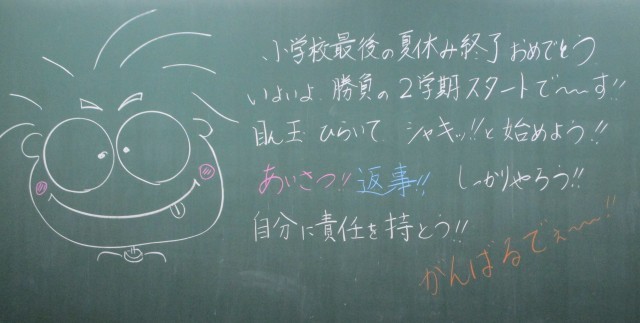 小学校最後の夏休み終了おめでとう
いよいよ勝負の2学期スタートで〜〜す!!
目ん玉ひらいてシャキッ!!と始めよう!!
あいさつ!!返事!!しっかりやろう!!
自分に責任を持とう!!
がんばるでぇ〜〜!!